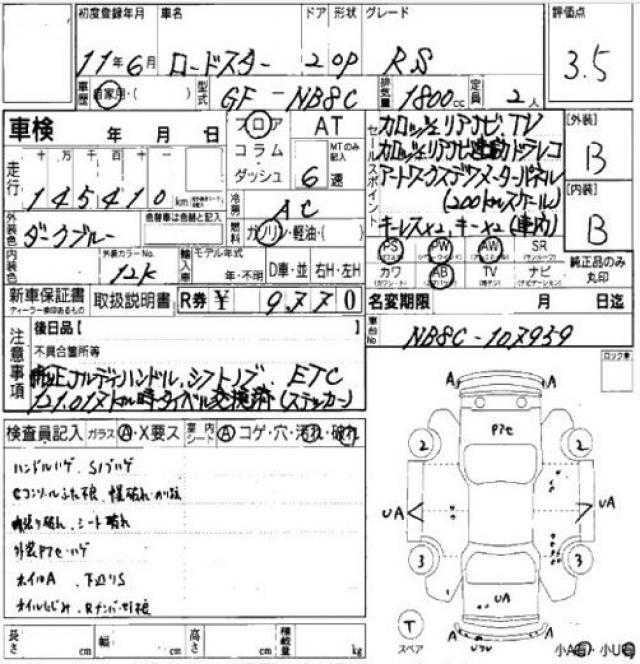 初度登録年月 車名 ドア 形状 グレード 評価点
11年6月 ロードスター 2 OP RS 3.5
車歴 自家用・( ) 型式 GF-NB8C 排気量 1800cc 定員 2人
車検 年 月 日
フロア AT
コラム MTのみ記入
ダッシュ 6速
走行 十万千百十一
145410 km
セールスポイント
カロッツェリアナビ TV
カロッツェリアナビ連動ドラレコ
アートワークスデザインメーターパネル
(200kmスケール)
キーレスx2、キーx2(車内)
[外装]
B
[内装]
B
冷房 AC
燃料 ガソリン・軽油・( )
外装色 色替車は色替と記入
ダークブルー
内装色 外装カラーNo. 12K
輸入車 モデル年式 年・不明 D車・並 右H・左H
PS PW AW SR (サンルーフ)
カワ AB TV ナビ (ナビゲーション)
純正品のみ丸印
新車保証書 取扱説明書 R券 ¥ 9770
ディーラー捺印あるもの
名変期限 月 日迄
車台No NB8C-107959
注意事項
後日品【 】
不具合箇所等
純正ナルディハンドル、シフトノブ、ETC
121.017キロ時タイベル交換済(ステッカー)
ロック車
検査員記入 ガラス A・X要ス 車内シート A コゲ・穴・汚れ・破れ
ハンドルハゲ、Sノブハゲ
シート破れ
外装Pアセ・ハゲ
ホイルA、下廻りS
A A
Pアセ
2 2
UA UA
3 3
UA
T
スペア
A A
小A・小U
長さ cm 幅 cm 高さ cm 積載量 kg